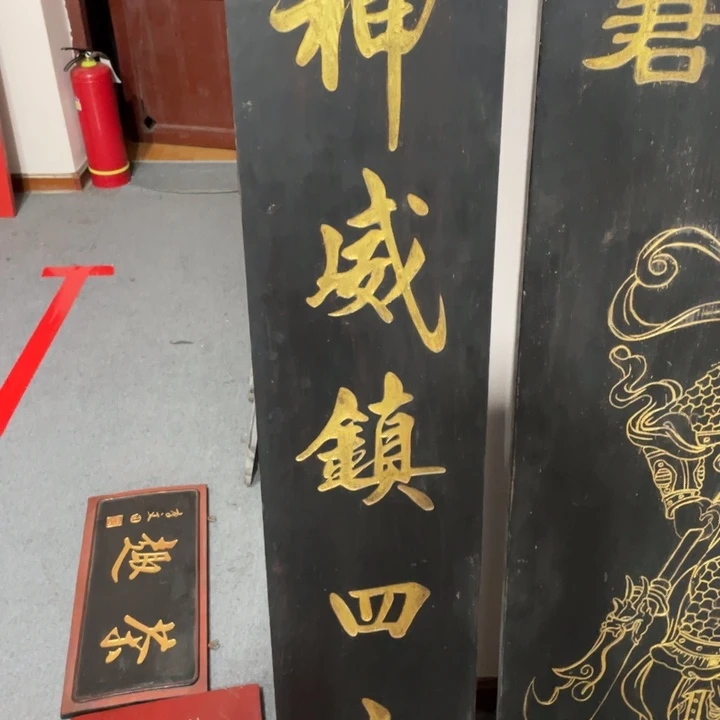 君
神威鎮四
茶趣